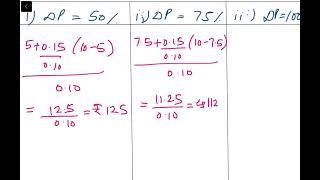 i) DP = 50%
5 + 0.15/0.10 (10-5)
0.10
= 12.5/0.10 = ₹ 125
ii) DP = 75%
7.5 + 0.15/0.10 (10-7.5)
0.10
= 11.25/0.10 = ₹112
iii) DP=100